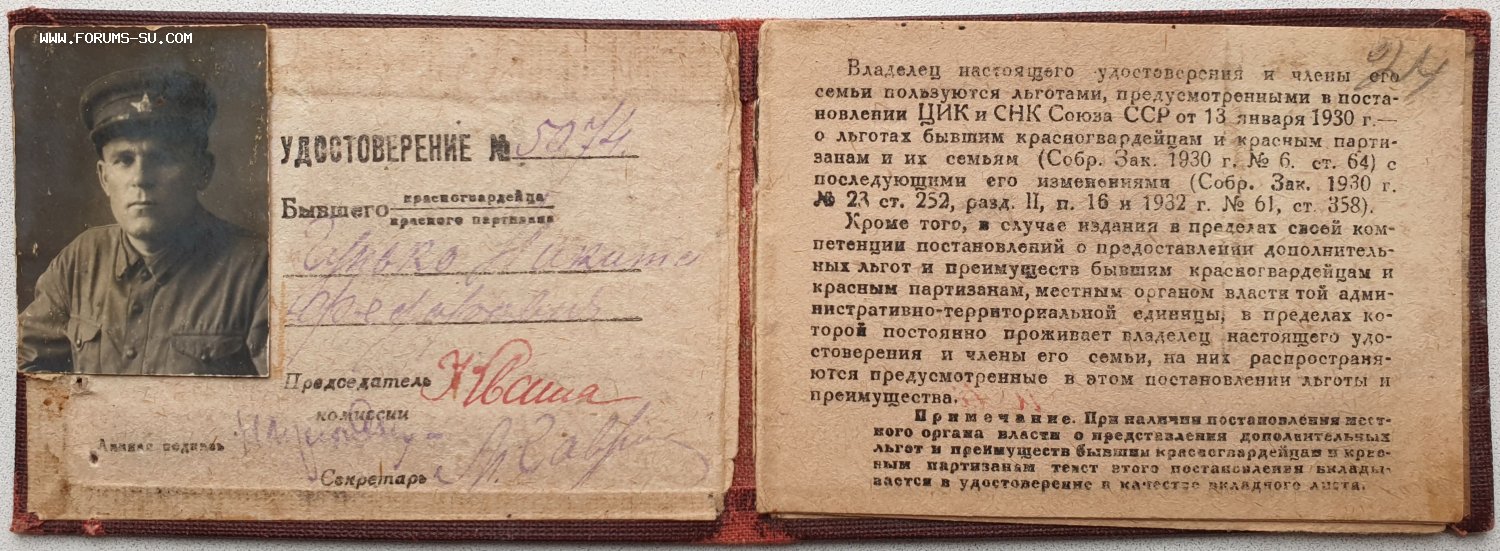 WWW.FORUMS-SU.COM
УДОСТОВЕРЕНИЕ № 5074.
Бывшего красногвардейца
красного партизана
Никите
Председатель Кваша
комиссии
Личная подпись
Секретарь
Владелец настоящего удостоверения и члены его
семьи пользуются льготами, предусмотренными в поста-
новлении ЦИК и СНК Союза ССР от 13 января 1930 г.—
о льготах бывшим красногвардейцам и красным парти-
занам и их семьям (Собр. Зак. 1930 г. № 6. ст. 64) с
последующими его изменениями (Собр. Зак. 1930 г.
№ 23 ст. 252, разд. II, п. 16 и 1932 г. № 61, ст. 358).
Кроме того, в случае издания в пределах своей ком-
петенции постановлений о предоставлении дополнитель-
ных льгот и преимуществ бывшим красногвардейцам и
красным партизанам, местным органом власти той адми-
нистративно-территориальной единицы, в пределах ко-
торой постоянно проживает владелец настоящего удо-
стоверения и члены его семьи, на них распространя-
ются предусмотренные в этом постановлении льготы и
преимущества.
Примечание. При наличии постановления мест-
ного органа власти о представлении дополнительных
льгот и преимуществ бывшим красногвардейцам и крас-
ным партизанам текст этого постановления вклады-
вается в удостоверение в качестве вкладного листа.